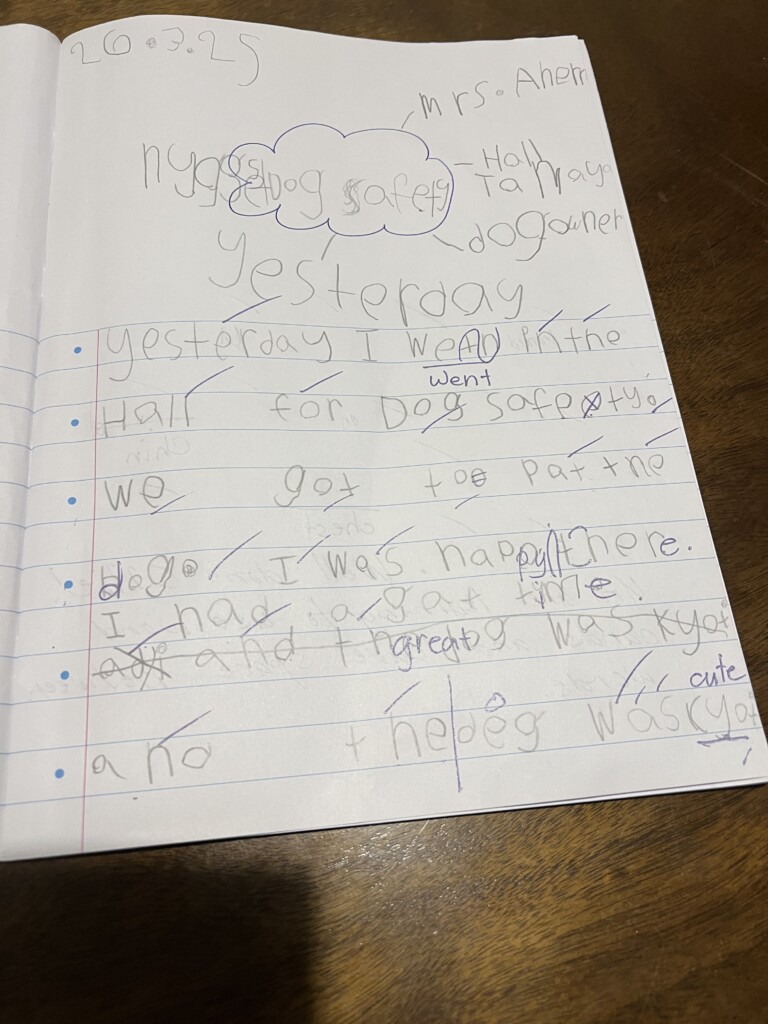 26.3.25
mrs. Ahern
Dog safety
Hall
dog owner
yesterday
yesterday I in the
went
Hall for Dog safety.
we got to pat the
dog. I was happy there.
I had a gat time.
and great was kyot
cute
and the dog was kyot